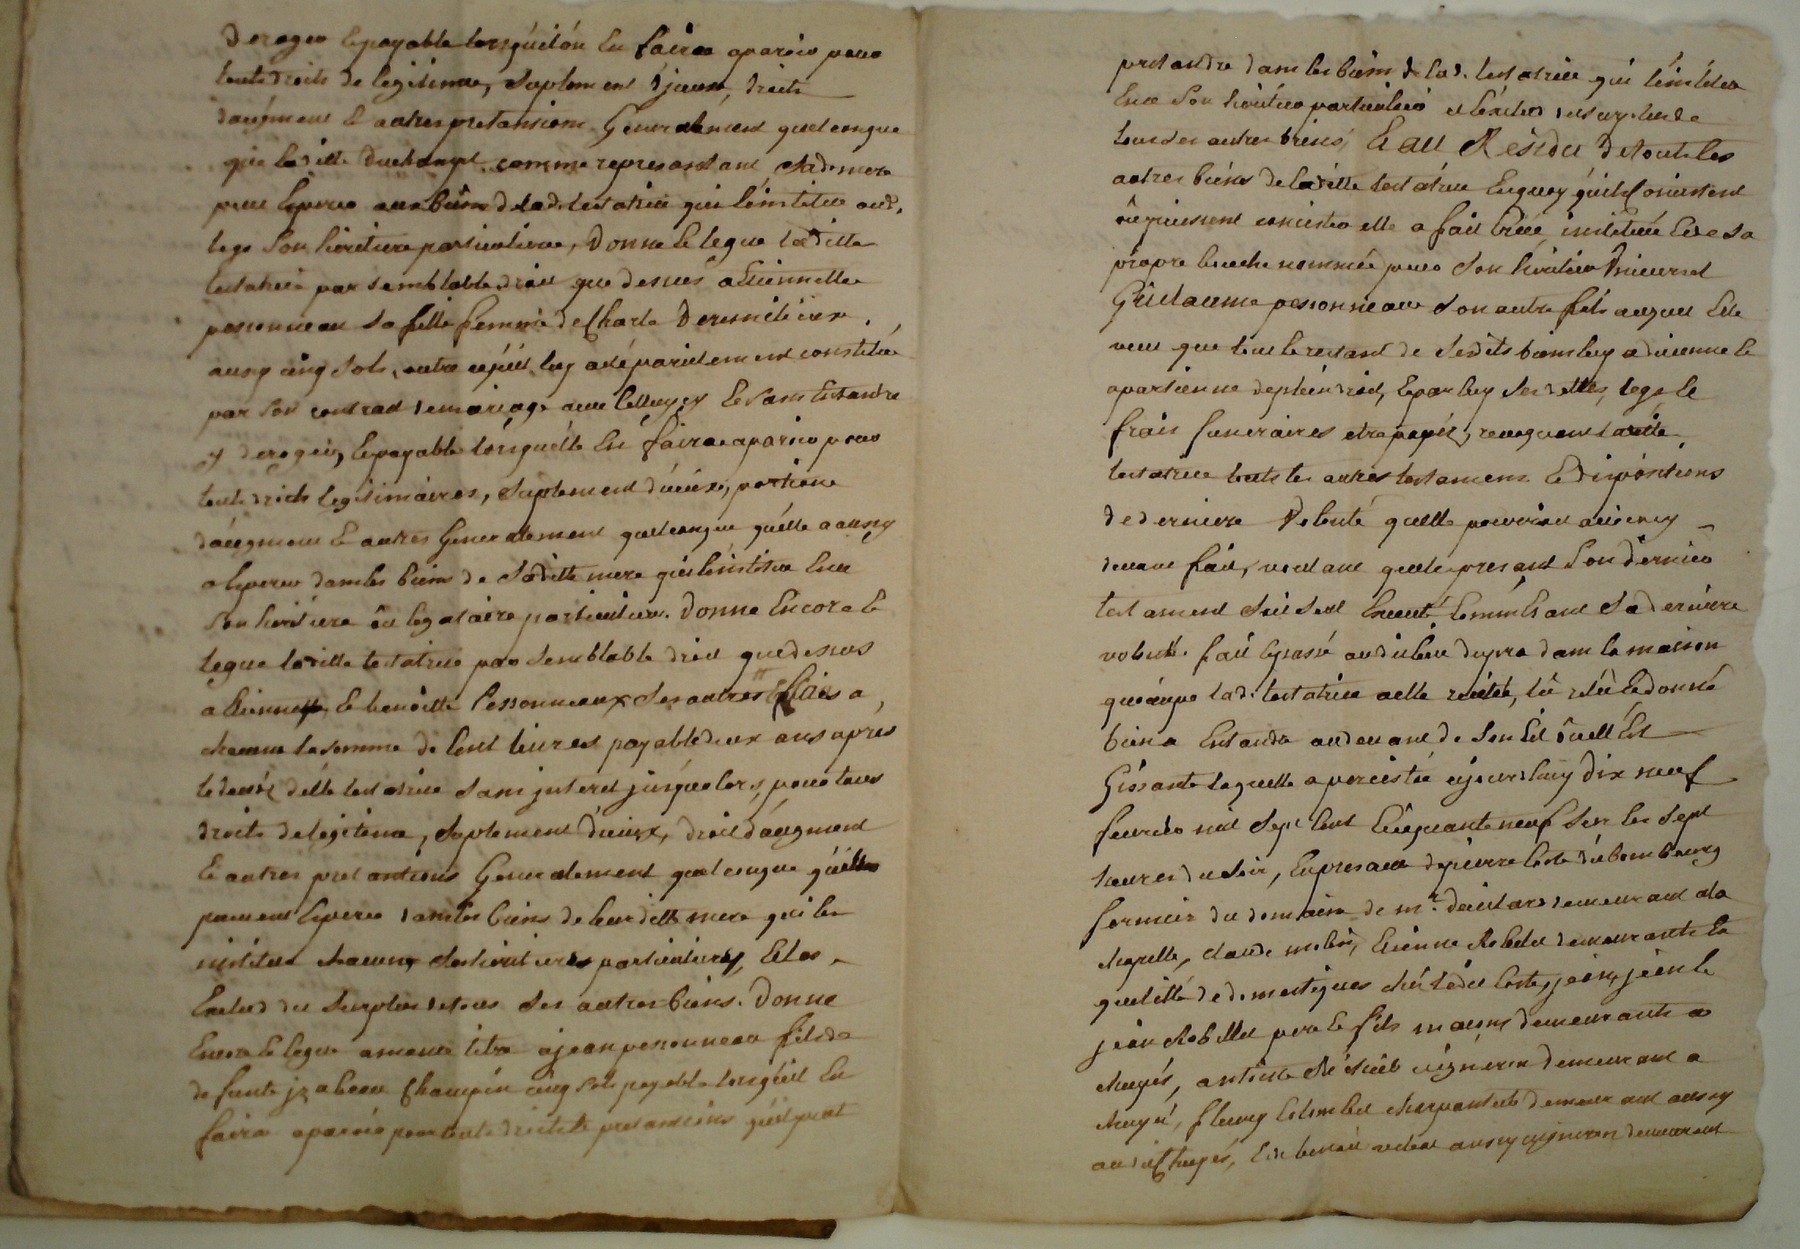 deroger & payable lorsqu'il ou en faira aparoir pour
touts droits de legitime, suplement d'jceux, droits
d'augment & autres pretantions Generalement quelconque
que laditte duchampt comme representant sad. mere
peut esperer aux biens de lad. testatrice qui l'institue aud.
legs son héritiere particuliere, donne & legue laditte
testatrice par semblable droit que dessus a Etiennette
pessonneau sa fille femme de Charle
aussy cinq sols, outre ce qu'il luy a été parielement constitué
par son contrat de mariage avec celluy cy & sans entandre
y deroger, & payable lorsqu'elle en faira aparoir pour
touts droits legitimaires, suplement d'iceux, portions
d'augment & autres Generalement quelconque qu'elle a aussy
a esperer dans les biens de saditte mere qui l'institue en ce
son héritiere ou legataire particuliere. donne Encore &
legue laditte testatrice par semblable droit que dessus
a & benoitte Pessonneaux ses autres filles a
chacune la somme de Cent livres payable deux ans apres
le decés d'elle testatrice sans jnteret jusqu'alors, pour tous
droits de legitime, suplement d'iceux, droit d'augment
& autres pretantions Generalement quelconque qu'elles
peuvent esperer dans les biens de leur ditte mere qui les
institue chacune ses héritieres particulieres, & les
Exclud du surplus de tous ses autres biens. donne
Encore & legue a meme titre a jean pessonneau fils de
defunte jzabeau Champin cinq sols payable lorsqu'il en
faira aparoir pour touts droits & pretansions qu'il peut
pretandre dans les biens de lad. testatrice qui l'institue
en ce son héritier particulier et l'exclud du surplus de
tous ses autres biens, Et au Residu de touts les
autres biens de laditte testatrice En quoy qu'ils consistent
ou puissent concister elle a fait créé, institué & de sa
propre bouche nommée pour son héritier Universel
Guillaume pessonneau son autre fils auquel Elle
veut que tout le restant de sesdits biens luy advienne &
apartienne de plein droit, & par luy ses dettes, legs, &
frais funeraires etre payés, revoquant laditte
testatrice touts les autres testamens & dispositions
de derniere Volonté qu'elle pourroit avoir cy
devant fait, voulant que le presant son dernier
testament soit seul Executé comm'Etant sa derniere
volonté. fait & passé audit lieu dupra dans la maison
qu'occupe lad. testatrice a elle recité, lû relû & donné
bien a Entandre audevant de son lit ou ell'Est
Gissante laquelle a percistée cejourd'huy dix neuf
fevrier mil sept Cent Cinquante neuf sur les sept
heures du soir, En presance de pierre Coste
fermier du domaine de mr. demeurant a la
chapelle, claude Etienne Robelet demeurants En
quallité de domestiques chés ledit Coste, jean, jean &
jean Robellet pere & fils maçons demeurants a
Chuyés, antoine vigneron demeurant a
Chuyés, fleury Colombet charpantier demeurant aussy
audit Chuyés, & de benoit aussy vigneron demeurant